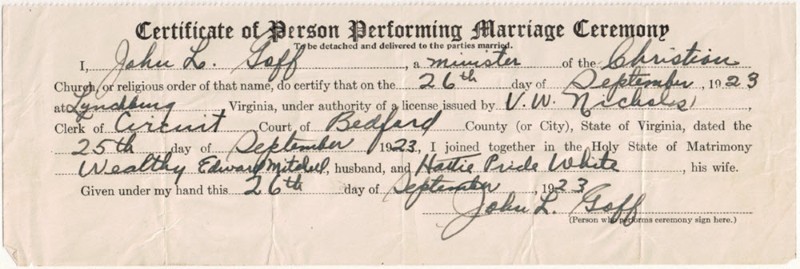 Certificate of Person Performing Marriage Ceremony
To be detached and delivered to the parties married.
I, John L. Goff, a minister of the Christian
Church, or religious order of that name, do certify that on the 26th day of September, 1923
at Lynchburg, Virginia, under authority of a license issued by V. W. Nichols,
Clerk of Circuit Court of Bedford County (or City), State of Virginia, dated the
25th day of September 1923, I joined together in the Holy State of Matrimony
Wealthy Edward Mitchell, husband, and Hattie Pride White, his wife.
Given under my hand this 26th day of September, 1923
John L. Goff
(Person who performs ceremony sign here.)